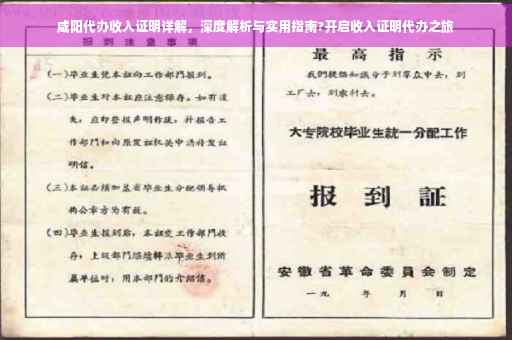 咸阳代办收入证明详解，深度解析与实用指南?开启收入证明代办之旅
报到注意事项
(一)毕业生凭本证向工作部门报到。
(二)毕业生对本证应注意保存。如有遗
失，应即登报声明作废，并报告工
作部门和向原发证机关申请补发证
明信。
(三)本证必须加盖省毕业生分配领导机
构公章方为有效。
(四)毕业生报到后，本证交工作部门收
存；上级部门
属单位时，用本部门的介绍信。
最高指示
我们提倡知识分子到群众中去，到
工厂去，到农村去。
大专院校毕业生统一分配工作
报到証
安徽省革命委員会制定
一九 年 月 日